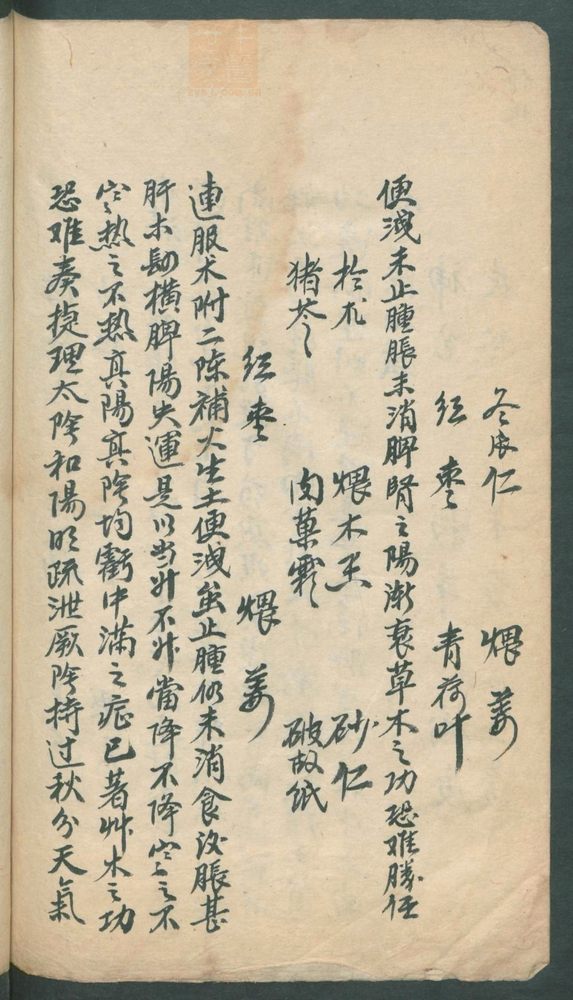 冬瓜仁　煨姜
红枣　青荷叶
便洩未止腫脹未消脾腎之陽漸衰草木之功恐难勝任
於朮　煨木王　砂仁
猪苓　肉菓霜　破故纸
红枣　煨姜
連服术附二陈補火生土便洩虽止腫仍未消食後脹甚
肝木勗横脾陽失運是以当升不升當降不降寒之不
寒热之不热真陽真陰均虧中滿之症已著艸木之功
恐难奏捷理太陰和陽明疏泄厥陰待过秋分天氣